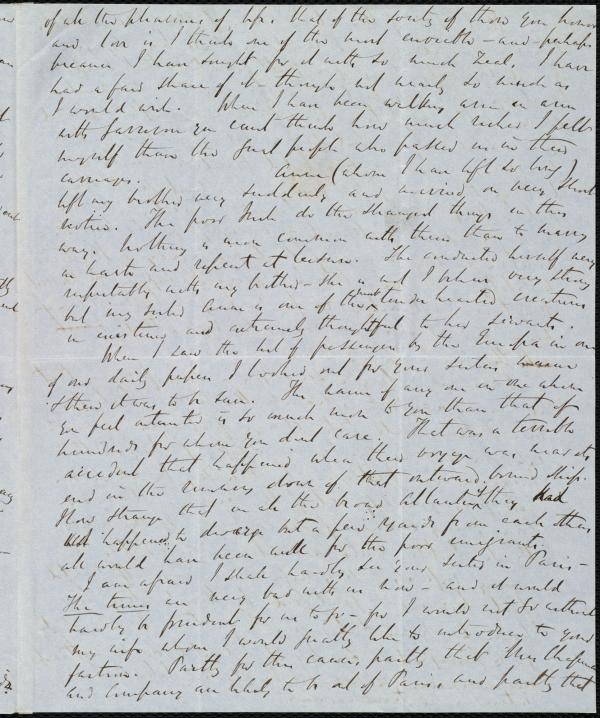 of all the pleasures of life, that of the society of those you honor
and love is I think one of the most enviable – and – perhaps
because I have sought for it with so much zeal, I have
had a fair share of it – though not nearly so much as
I would wish. When I have been walking arm in arm
with Garrison you can't think how much richer I felt
myself than the great people who passed us in their
carriages. Anne (whom I have left so long)
left my brother very suddenly and married on very short
notice. The poor Irish do the strangest things in this
way. Nothing is more common with them than to marry
in haste and repent at leisure. She conducted herself very
respectably with my brother – she is not I think very strong
but my sister Anne is one of the most tender hearted creatures
in existence and extremely thoughtful to her servants.
When I saw the list of passengers by the Europa in one
of our daily papers I looked out for your sister's name
& there it was to be seen. The name of any one in whom
you feel interested is so much more to you than that of
hundreds for whom you don't care. That was a terrible
accident that happened when their voyage was near its
end in the running down of that outward bound ship.
How strange that in all the broad Atlantic if they had
happened to diverge but a few yards from each other
all would have been well for the poor emigrants.
I am afraid I shall hardly see your sister in Paris –
The times are very bad with us now – and it would
hardly be prudent for us to go – for I would not go without
my wife whom I would greatly like to introduce to your
sisters. Partly for this cause, partly that Mrs Chapman
and company are likely to be out of Paris, and partly that